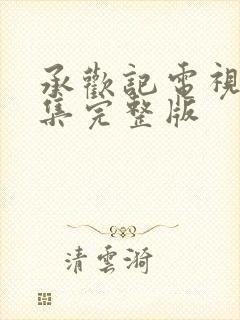 承歡記電視
集完整版
清雲漪